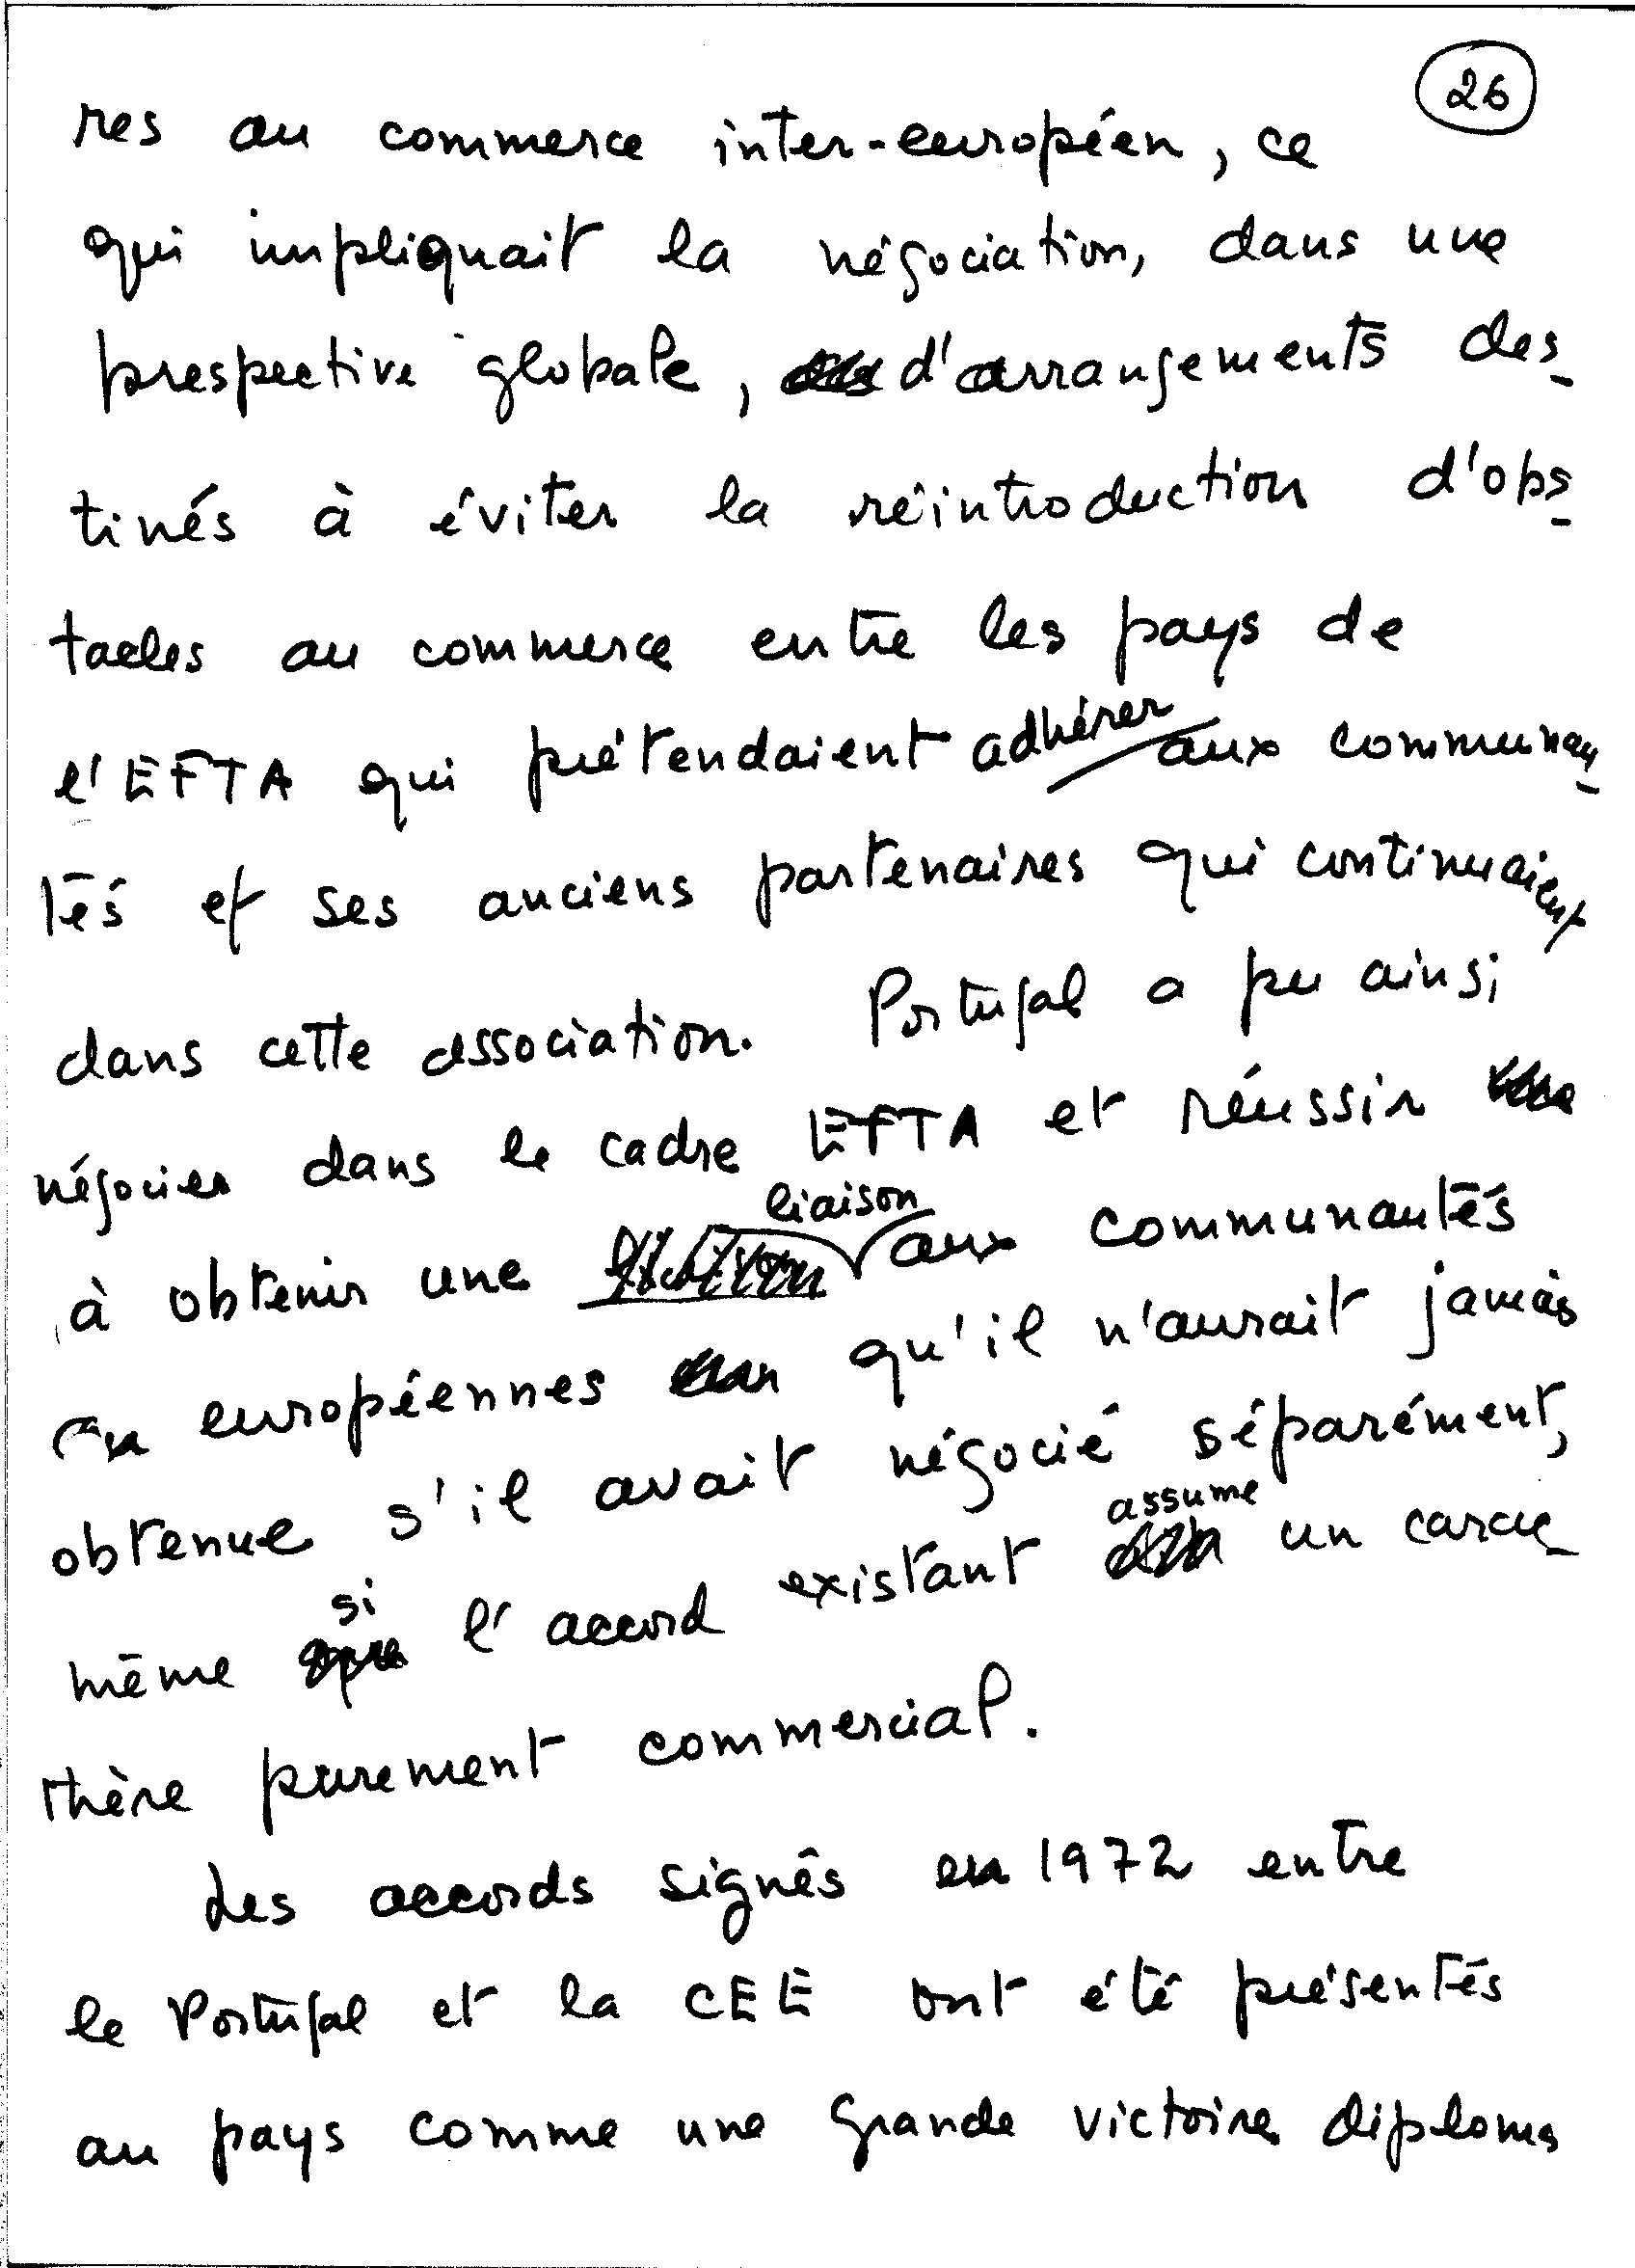 26
res au commerce inter-européen, ce
qui impliquait la négociation, dans une
prespective globale, d'arrangements des-
tinés à éviter la réintroduction d'obs-
tacles au commerce entre les pays de
l'EFTA qui prétendaient adhérer aux communau-
tés et ses anciens partenaires qui continuaient
dans cette association. Portugal a pu ainsi
négocier dans le cadre EFTA et réussir
à obtenir une liaison aux communautés
européennes qu'il n'aurait jamais
obtenue s'il avait négocié séparément,
même si l'accord existant assume un carac-
thère purement commercial.
Les accords signés en 1972 entre
le Portugal et la CEE ont été présentés
au pays comme une grande victoire diploma